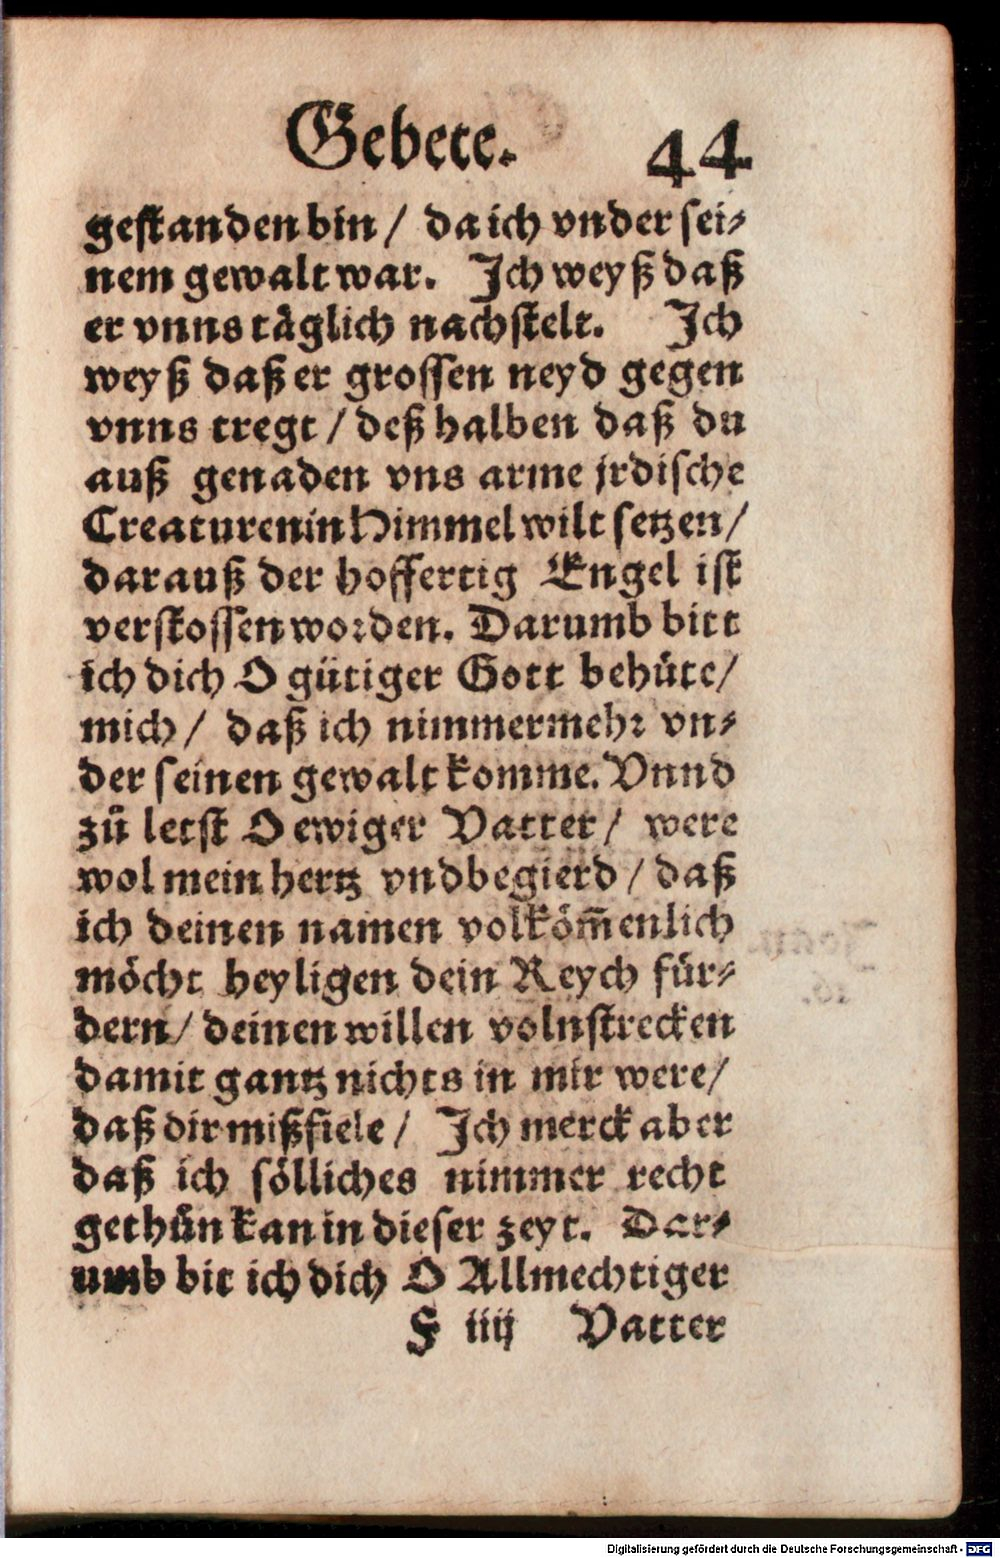 Gebete. 44
gestanden bin / da ich vnder sei⸗
nem gewalt war. Ich weyß daß
er vnns täglich nachstelt. Ich
weyß daß er grossen neyd gegen
vnns tregt / deß halben daß du
auß genaden vns arme jrdische
Creaturen in Himmel wilt setzen /
darauß der hoffertig Engel ist
verstossen worden. Darumb bitt
ich dich O gütiger Gott behüte /
mich / daß ich nimmermehr vn⸗
der seinen gewalt komme. Vnnd
zů letst O ewiger Vatter / were
wol mein hertz vnd begierd / daß
ich deinen namen volköm̃enlich
möcht heyligen dein Reych für⸗
dern / deinen willen volnstrecken
damit gantz nichts in mir were /
daß dir mißfiele / Ich merck aber
daß ich sölliches nimmer recht
gethůn kan in dieser zeyt. Dar⸗
umb bit ich dich O Allmechtiger
F iiij Vatter
Digitalisierung gefördert durch die Deutsche Forschungsgemeinschaft - DFG